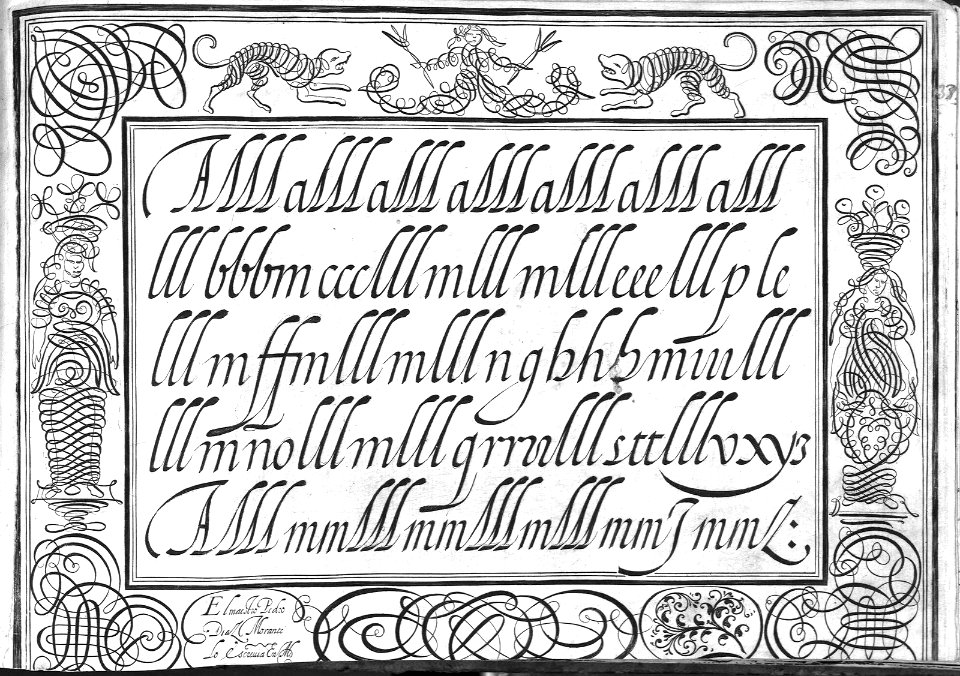 Alll alll alll alll alll alll alll
lll bbbm ccclll mlll mllleeelll p le
lll mffmlll mlll nghhhmiulll
lll mñolll mlll qrr lllsttlllvxyz
Alll mmlll mmlll mlll mmJ mmL:
El maestro Pedro
Diaz Morante
lo Escrevia En